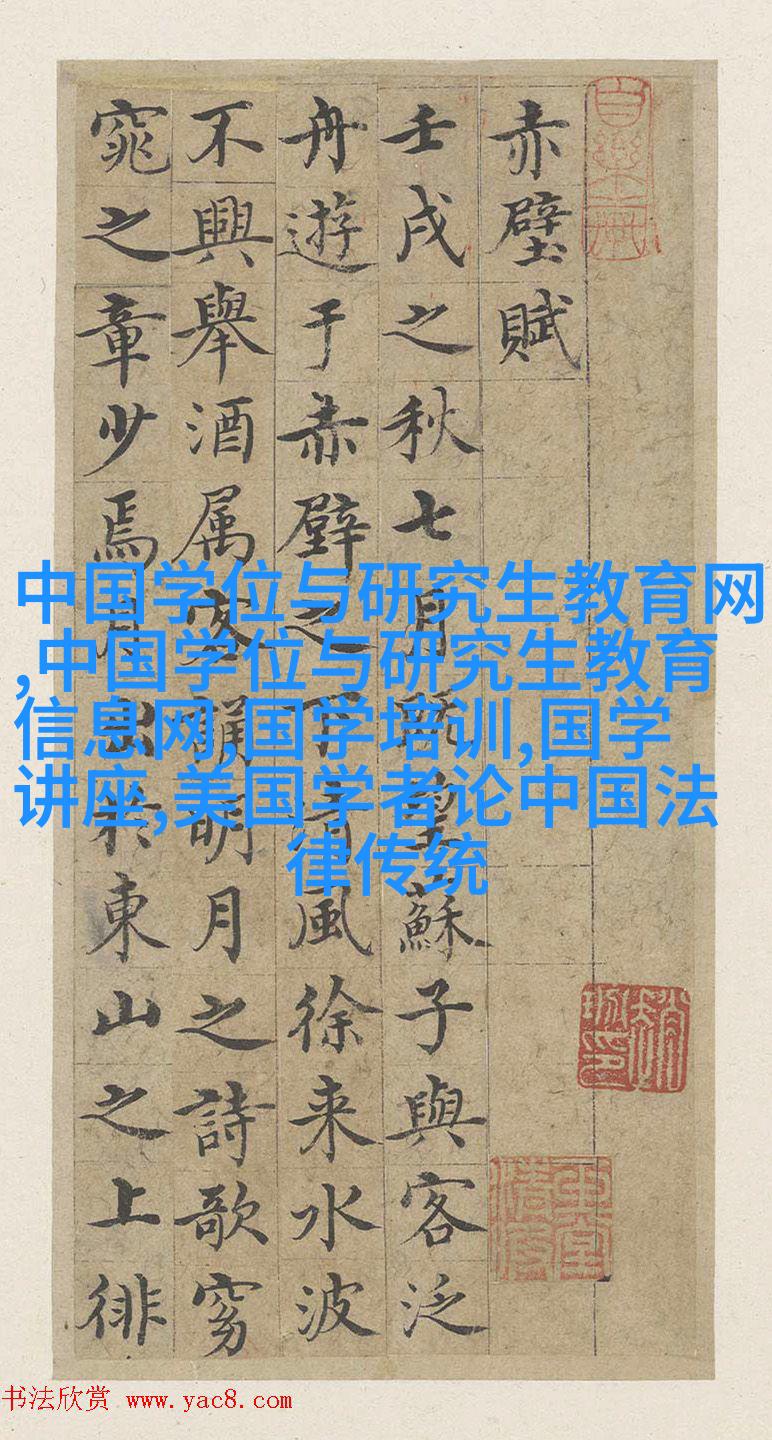 赤壁賦
壬戌之秋七月既望蘇子與客泛
舟遊于赤壁之下清風徐来水波
不興舉酒属客誦明月之詩歌窈
窕之章少焉月出於東山之上徘
中国学位与研究生教育网
,中国学位与研究生教育
信息网,国学培训,国学
讲座,美国学者论中国法
律传统
书法欣赏 www.yac8.com